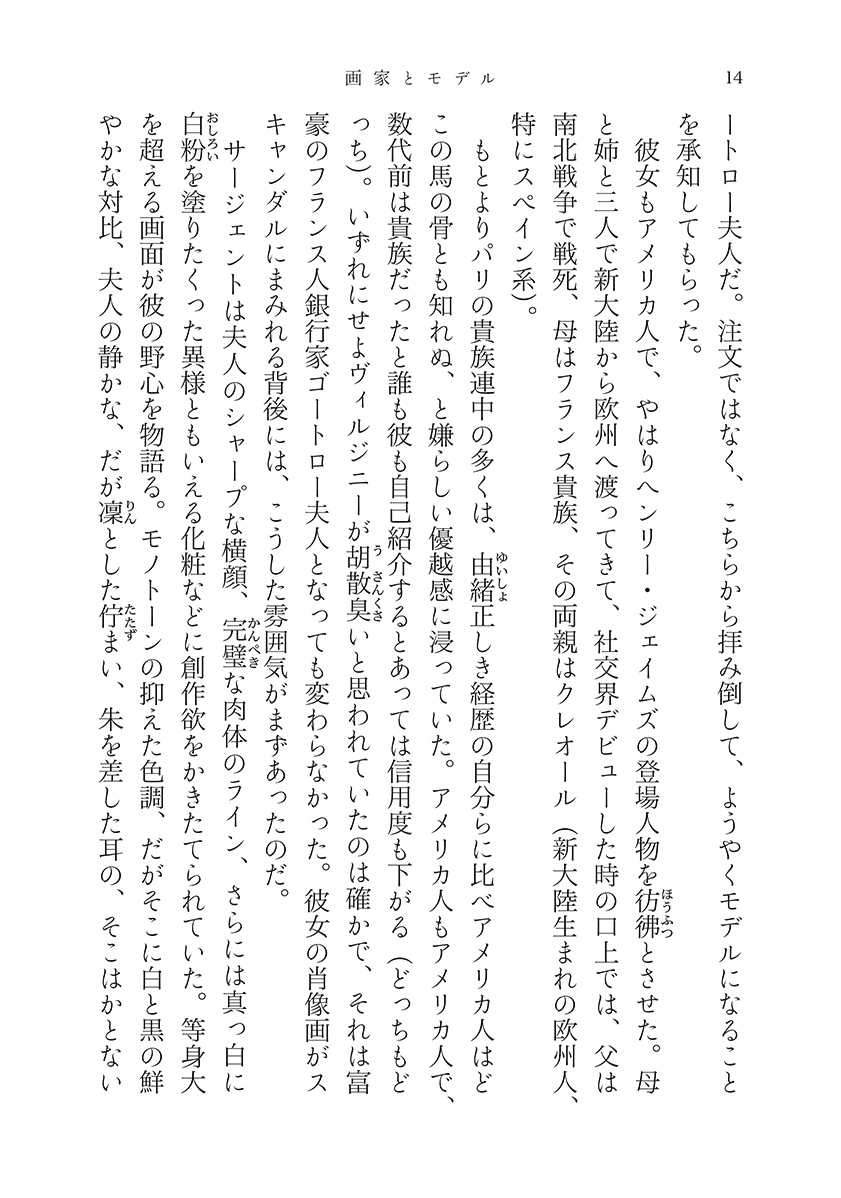 画家とモデル
14
ートロー夫人だ。注文ではなく、こちらから拝み倒して、ようやくモデルになること
を承知してもらった。
彼女もアメリカ人で、やはりヘンリー・ジェイムズの登場人物を彷彿とさせた。母
ほうふつ
と姉と三人で新大陸から欧州へ渡ってきて、社交界デビューした時の口上では、父は
南北戦争で戦死、母はフランス貴族、その両親はクレオール（新大陸生まれの欧州人、
特にスペイン系）。
もとよりパリの貴族連中の多くは、由緒正しき経歴の自分らに比べアメリカ人はど
ゆいしょ
この馬の骨とも知れぬ、と嫌らしい優越感に浸っていた。アメリカ人もアメリカ人で、
数代前は貴族だったと誰も彼も自己紹介するとあっては信用度も下がる（どっちもど
っち）。いずれにせよヴィルジニーが胡散臭いと思われていたのは確かで、それは富
うさんくさ
豪のフランス人銀行家ゴートロー夫人となっても変わらなかった。彼女の肖像画がス
キャンダルにまみれる背後には、こうした雰囲気がまずあったのだ。
サージェントは夫人のシャープな横顔、完璧な肉体のライン、さらには真っ白に
かんぺき
白粉を塗りたくった異様ともいえる化粧などに創作欲をかきたてられていた。等身大
おしろい
を超える画面が彼の野心を物語る。モノトーンの抑えた色調、だがそこに白と黒の鮮
やかな対比、夫人の静かな、だが凜とした佇まい、朱を差した耳の、そこはかとない
りん
たたず